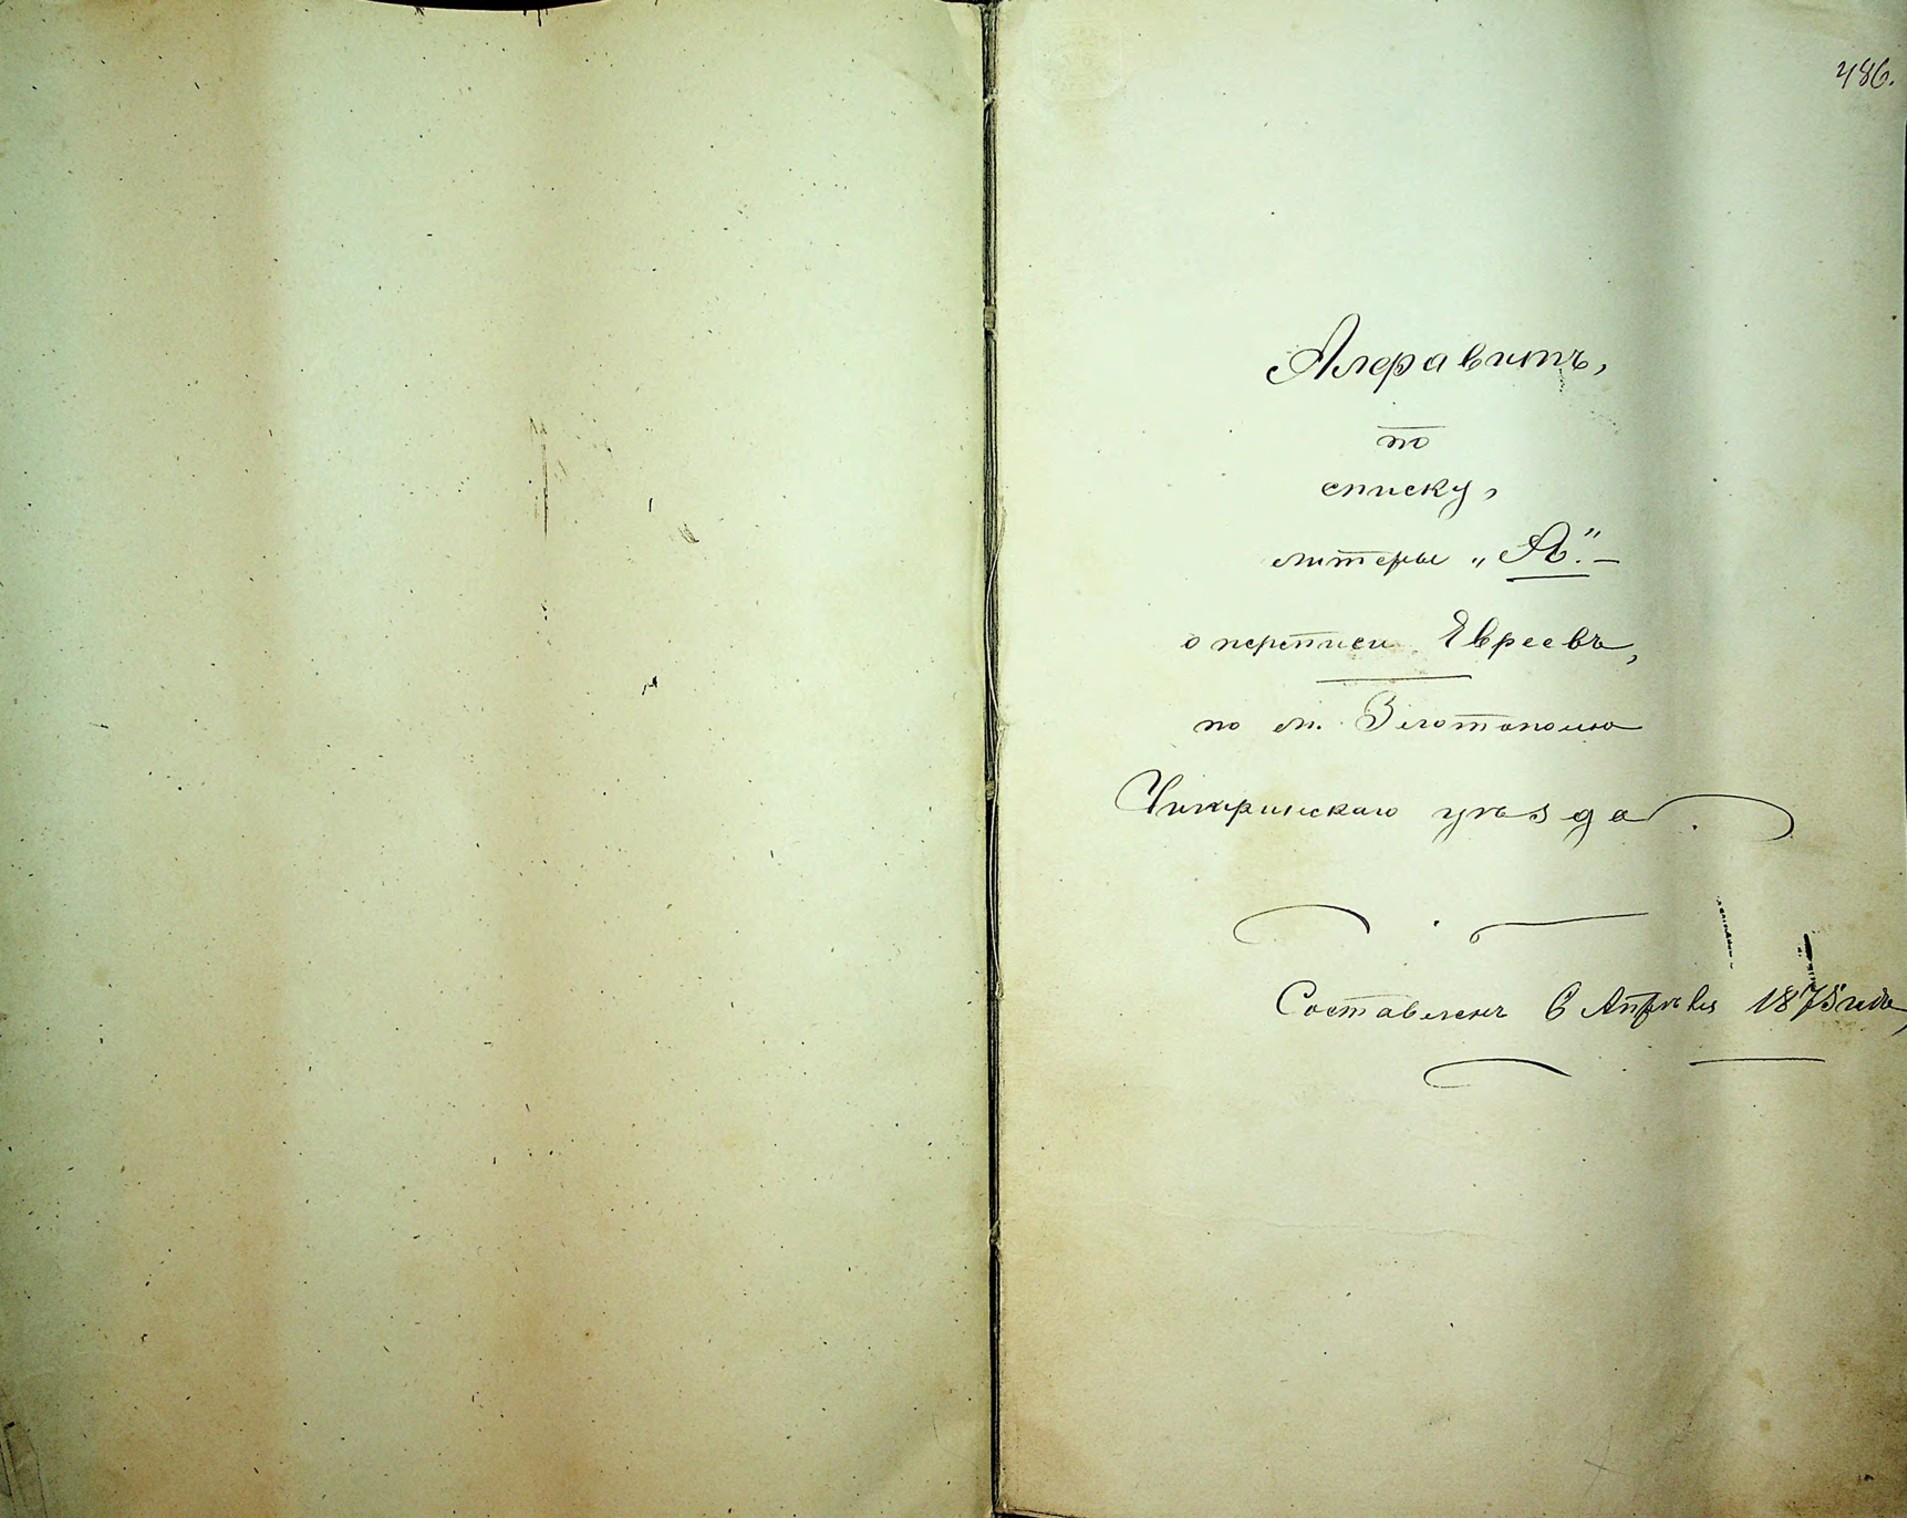 486.
Алфавитъ,
по
списку,
литеры „А."—
о переписи Евреевъ,
по м. Златополю
Чигиринскаго уѣзда.
Составленъ 6 Апрѣля 1875 года,